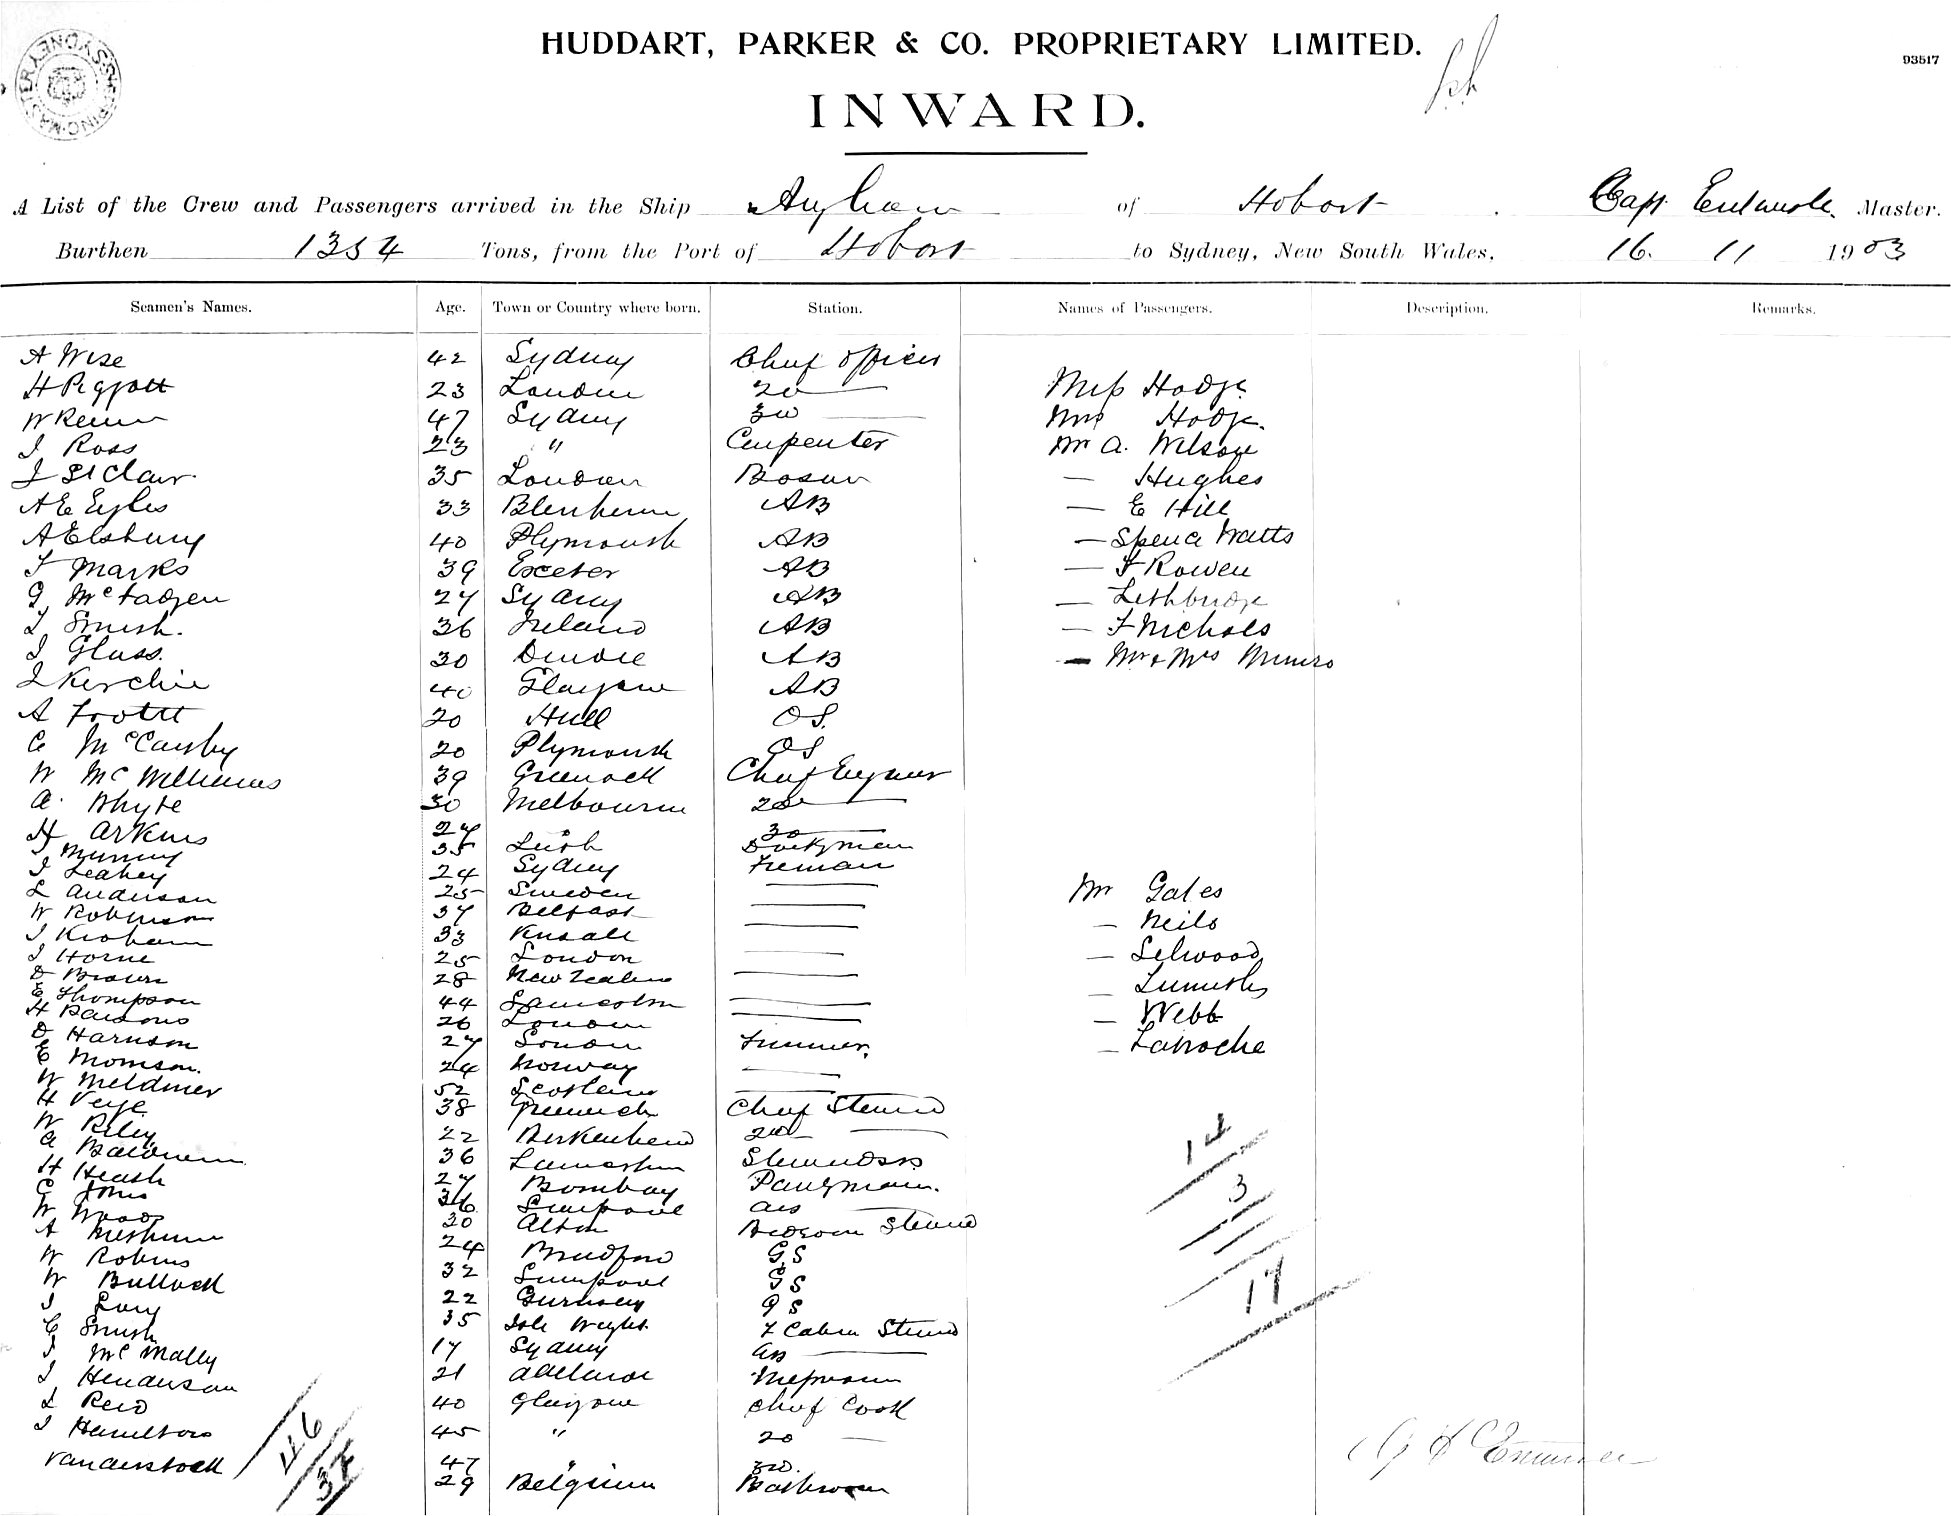 HUDDART, PARKER & CO. PROPRIETARY LIMITED.
93517
INWARD.
A List of the Crew and Passengers arrived in the Ship of Hobart. Capt Master.
Burthen 1354 Tons, from the Port of Hobart to Sydney, New South Wales, 16. 11 1903
Seamen's Names. Age. Town or Country where born. Station. Names of Passengers. Description. Remarks.
A Wise 42 Sydney Chief Officer
H Pigjott 23 London 2d Miss Hodge
W 47 Sydney 3d Mrs Hodge.
J Ross 23 " Carpenter Mr A. Wilson
J St Clair. 35 London Bosun — Hughes
A E Eyles 33 Blenheim AB — E Hill
A Elsbury 40 Plymouth AB — Watts
F Marks 39 Exeter AB — F Rowen
G McFadzen 27 Sydney AB — Lethbridge
J Smith. 36 Ireland AB — F Nichols
J Glass. 30 Dundee AB — Mr & Mrs Munro
J Kerchie 40 Glasgow AB
A Foott 20 Hull OS.
C McCarthy 20 Plymouth OS
W McWilliams 39 Greenock Chief Engineer
A. Whyte 30 Melbourne 2d
H Arkins 27 3d
J Murray 35 Leith Donkeyman
J Leahey 24 Sydney Fireman
L Anderson 25 Sweden Mr Gales
W Robinson 37 Belfast
J 33 Kinsale — Neils
J Horne 25 London — Selwood
D Brown 28 New Zealand
E Thompson 44 Launceston
H Parsons 26 London — Webb
D Harrison 27 London Trimmer. — Laroche
E Morrison. 24 Norway
W Meldmer 52 Scotland
H 38 Greenwich Chief Steward
W Riley 22 Birkenhead 2d
A Baldwin 36 Launceston Stewardess
H Heath 27 Bombay Pantryman.
G Johns 36 Liverpool ass
W Wood 30 Alton Bedroom Steward
A 24 Bradford GS
W Robins 32 Liverpool GS
W Bullock 22 Guernsey GS
J 35 Isle Wight. F Cabin Steward
C Smith 17 Sydney ass
J McMally 21 Adelaide Messroom
J Henderson 40 Glasgow Chief Cook
L Reid 45 " 2d
J Hamilton 47 " 3d.
Vanderstock 29 Belgium
14
3
17
46